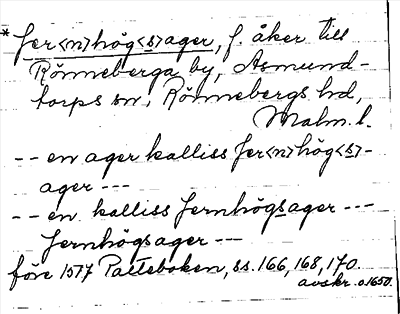 * Jer<n>hög<s>ager, f. åker till
Rönneberga by, Asmund-
torps sn, Rönnebergs hd,
Malm. l.
-- en ager kalliss Jer<n>hög<s>-
ager ---
-- en kalliss Jernhögsager ---
Jernhögsager --
före 1577 Palteboken, ss. 166, 168, 170.
avskr. o 1650.